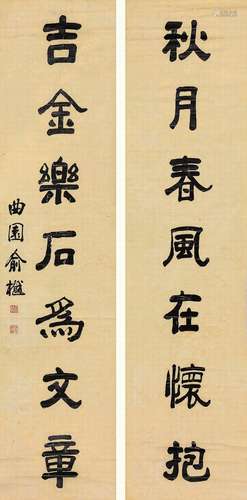 秋月春風在懷抱
吉金樂石為文章
曲園俞樾